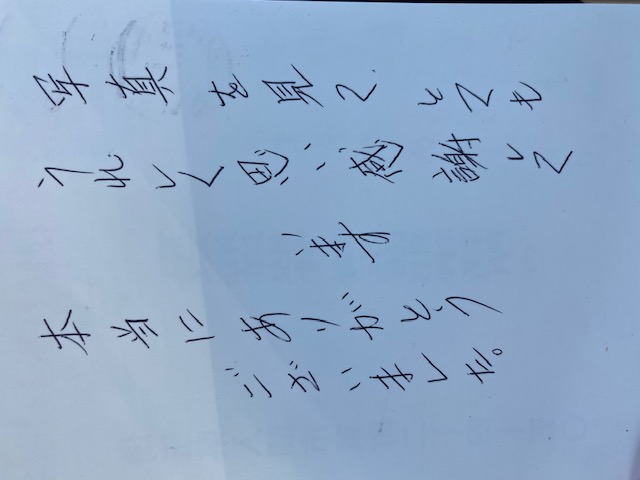 写真を見て とても
うれしく思い 感謝して
います
本当に ありがとう
ございました。